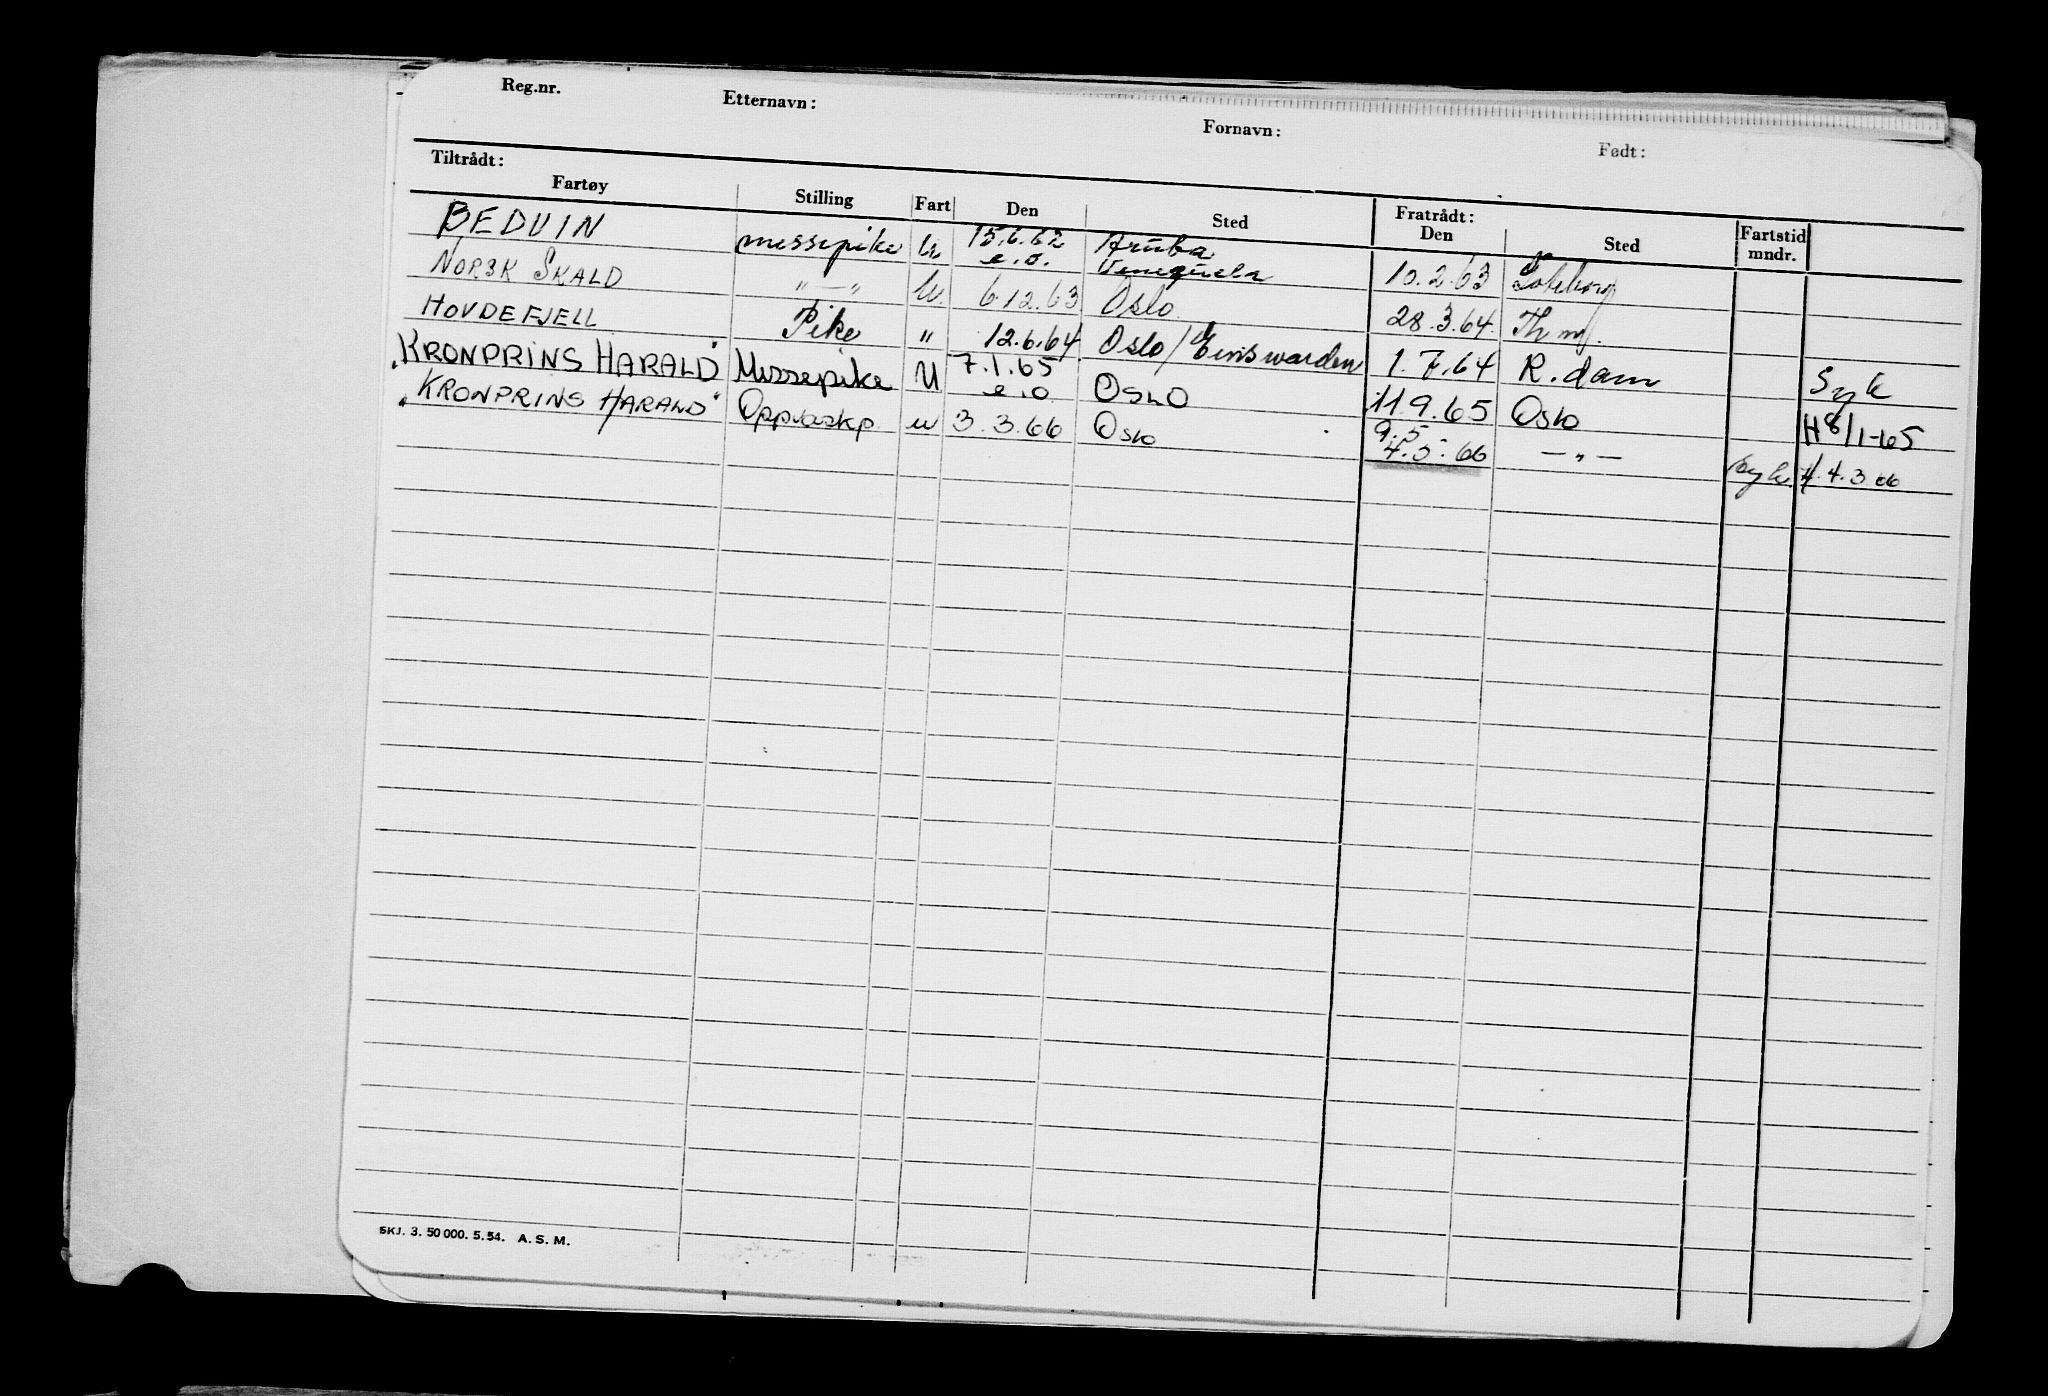 Reg.nr. Etternavn: Fornavn: Født:
Tiltrådt: Fratrådt:
Fartøy Stilling Fart Den Sted Den Sted Fartstid mndr.
BEDUIN messepike U 15.6.62 e.o. Aruba Venezuela 10.2.63 Göteborg
NORSK SKALD "—" U. 6.12.63 Oslo 28.3.64. Th.m.
HOVDEFJELL Pike " 12.6.64 Oslo/Einswarden 1.7.64 R.dam Syk
"KRONPRINS HARALD" Messepike U 7.1.65 e.o OSLO 11.9.65 Oslo H8/1-65
"KRONPRINS HARALD" Oppvaskp. u 3.3.66 Oslo 9.5 4.5.66 —"— Syk. H.4.3.66
SKJ. 3. 50 000. 5.54. A. S. M.